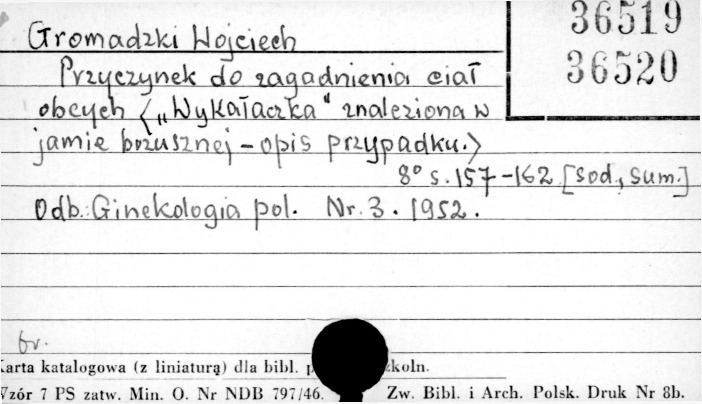 36519
36520
Gromadzki Wojciech
Przyczynek do zagadnienia ciał
obcych <„Wykałaczka" znaleziona w
jamie brzusznej – opis przypadku.>
8° s. 157-162 [Sod., Sum.]
Odb.: Ginekologia pol. Nr. 3. 1952.
br.
Karta katalogowa (z liniaturą) dla bibl. p koln.
Wzór 7 PS zatw. Min. O. Nr NDB 797/46. Zw. Bibl. i Arch. Polsk. Druk Nr 8b.